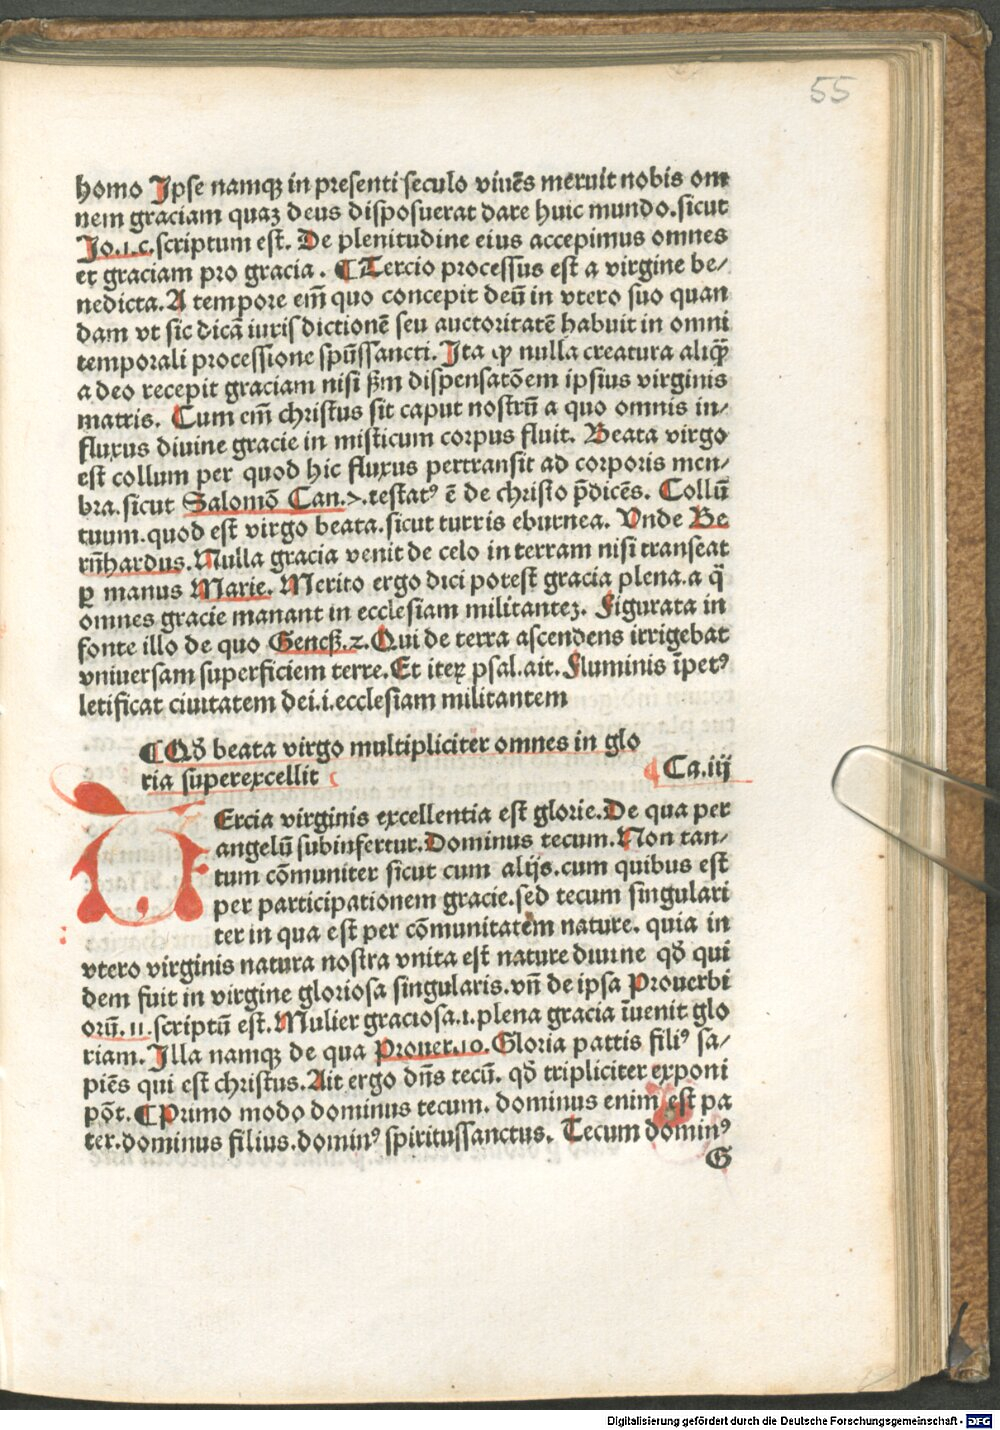 55
homo Ipse namqꝫ in presenti seculo viuẽs meruit nobis om
nem graciam quaꝫ deus disposuerat dare huic mundo.sicut
Jo.1.c.scriptum est. De plenitudine eius accepimus omnes
et graciam pro gracia. ¶Tercio processus est a virgine be/
nedicta.A tempore em̄ quo concepit deū in vtero suo quan
dam vt sic dicã iurisdictionẽ seu auctoritatẽ habuit in omni
temporali processione spūssancti.Ita ꝙ nulla creatura aliq̄̈
adeo recepit graciam nisi ẜm dispensatōem ipsius virginis
matris. Cum em̄ christus sit caput nostrū a quo omnis in/
fluxus diuine gracie in misticum corpus fluit. Beata virgo
est collum per quod hic fluxus pertransit ad corporis men/
bra.sicut Salomō Can.7.testatꝰ ē de christo p̄dicẽs. Collū
tuum.quod est virgo beata.sicut turris eburnea. Vnde Be
rn̄hardus.Nulla gracia venit de celo in terram nisi transeat
ꝑ manus Marie. Merito ergo dici potest gracia plena.a q̈
omnes gracie manant in ecclesiam militanteꝫ. Figurata in
fonte illo de quo Geneß.2.Qui de terra ascendens irrigebat
vniuersam superficiem terre.Et iteꝝ psal.ait.Fluminis īpetꝰ
letificat ciuitatem dei.i.ecclesiam militantem
¶Qđ beata virgo multipliciter omnes in glo
ria superexcellit Ca.iij
TErcia virginis excellentia est glorie.De qua per
angelū subinfertur.Dominus tecum.Non tan/
tum cōmuniter sicut cum alijs.cum quibus est
per participationem gracie.sed tecum singulari
ter in qua est per cōmunitatem nature. quia in
vtero virginis natura nostra vnita est nature diuine qđ qui
dem fuit in virgine gloriosa singularis.vn̄ de ipsa Prouerbi
orū.11.scriptū est.Mulier graciosa.i.plena gracia īuenit glo
riam.Illa namqꝫ de qua Prouer.10.Gloria pattis filiꝰ sa/
piẽs qui est christus.Ait ergo dn̄s tecū. qđ tripliciter exponi
pōt.¶Primo modo dominus tecum. dominus enim est pa
ter.dominus filius.dominꝰ spiritussanctus. Tecum dominꝰ
G
Digitalisierung gefördert durch die Deutsche Forschungsgemeinschaft - DFG